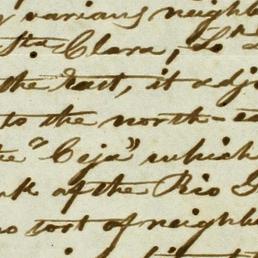 various neighb
Sta. Clara, So
the East, it adj
to the north-ea
"Ceja" which
of the Rio G
no tost of neighb